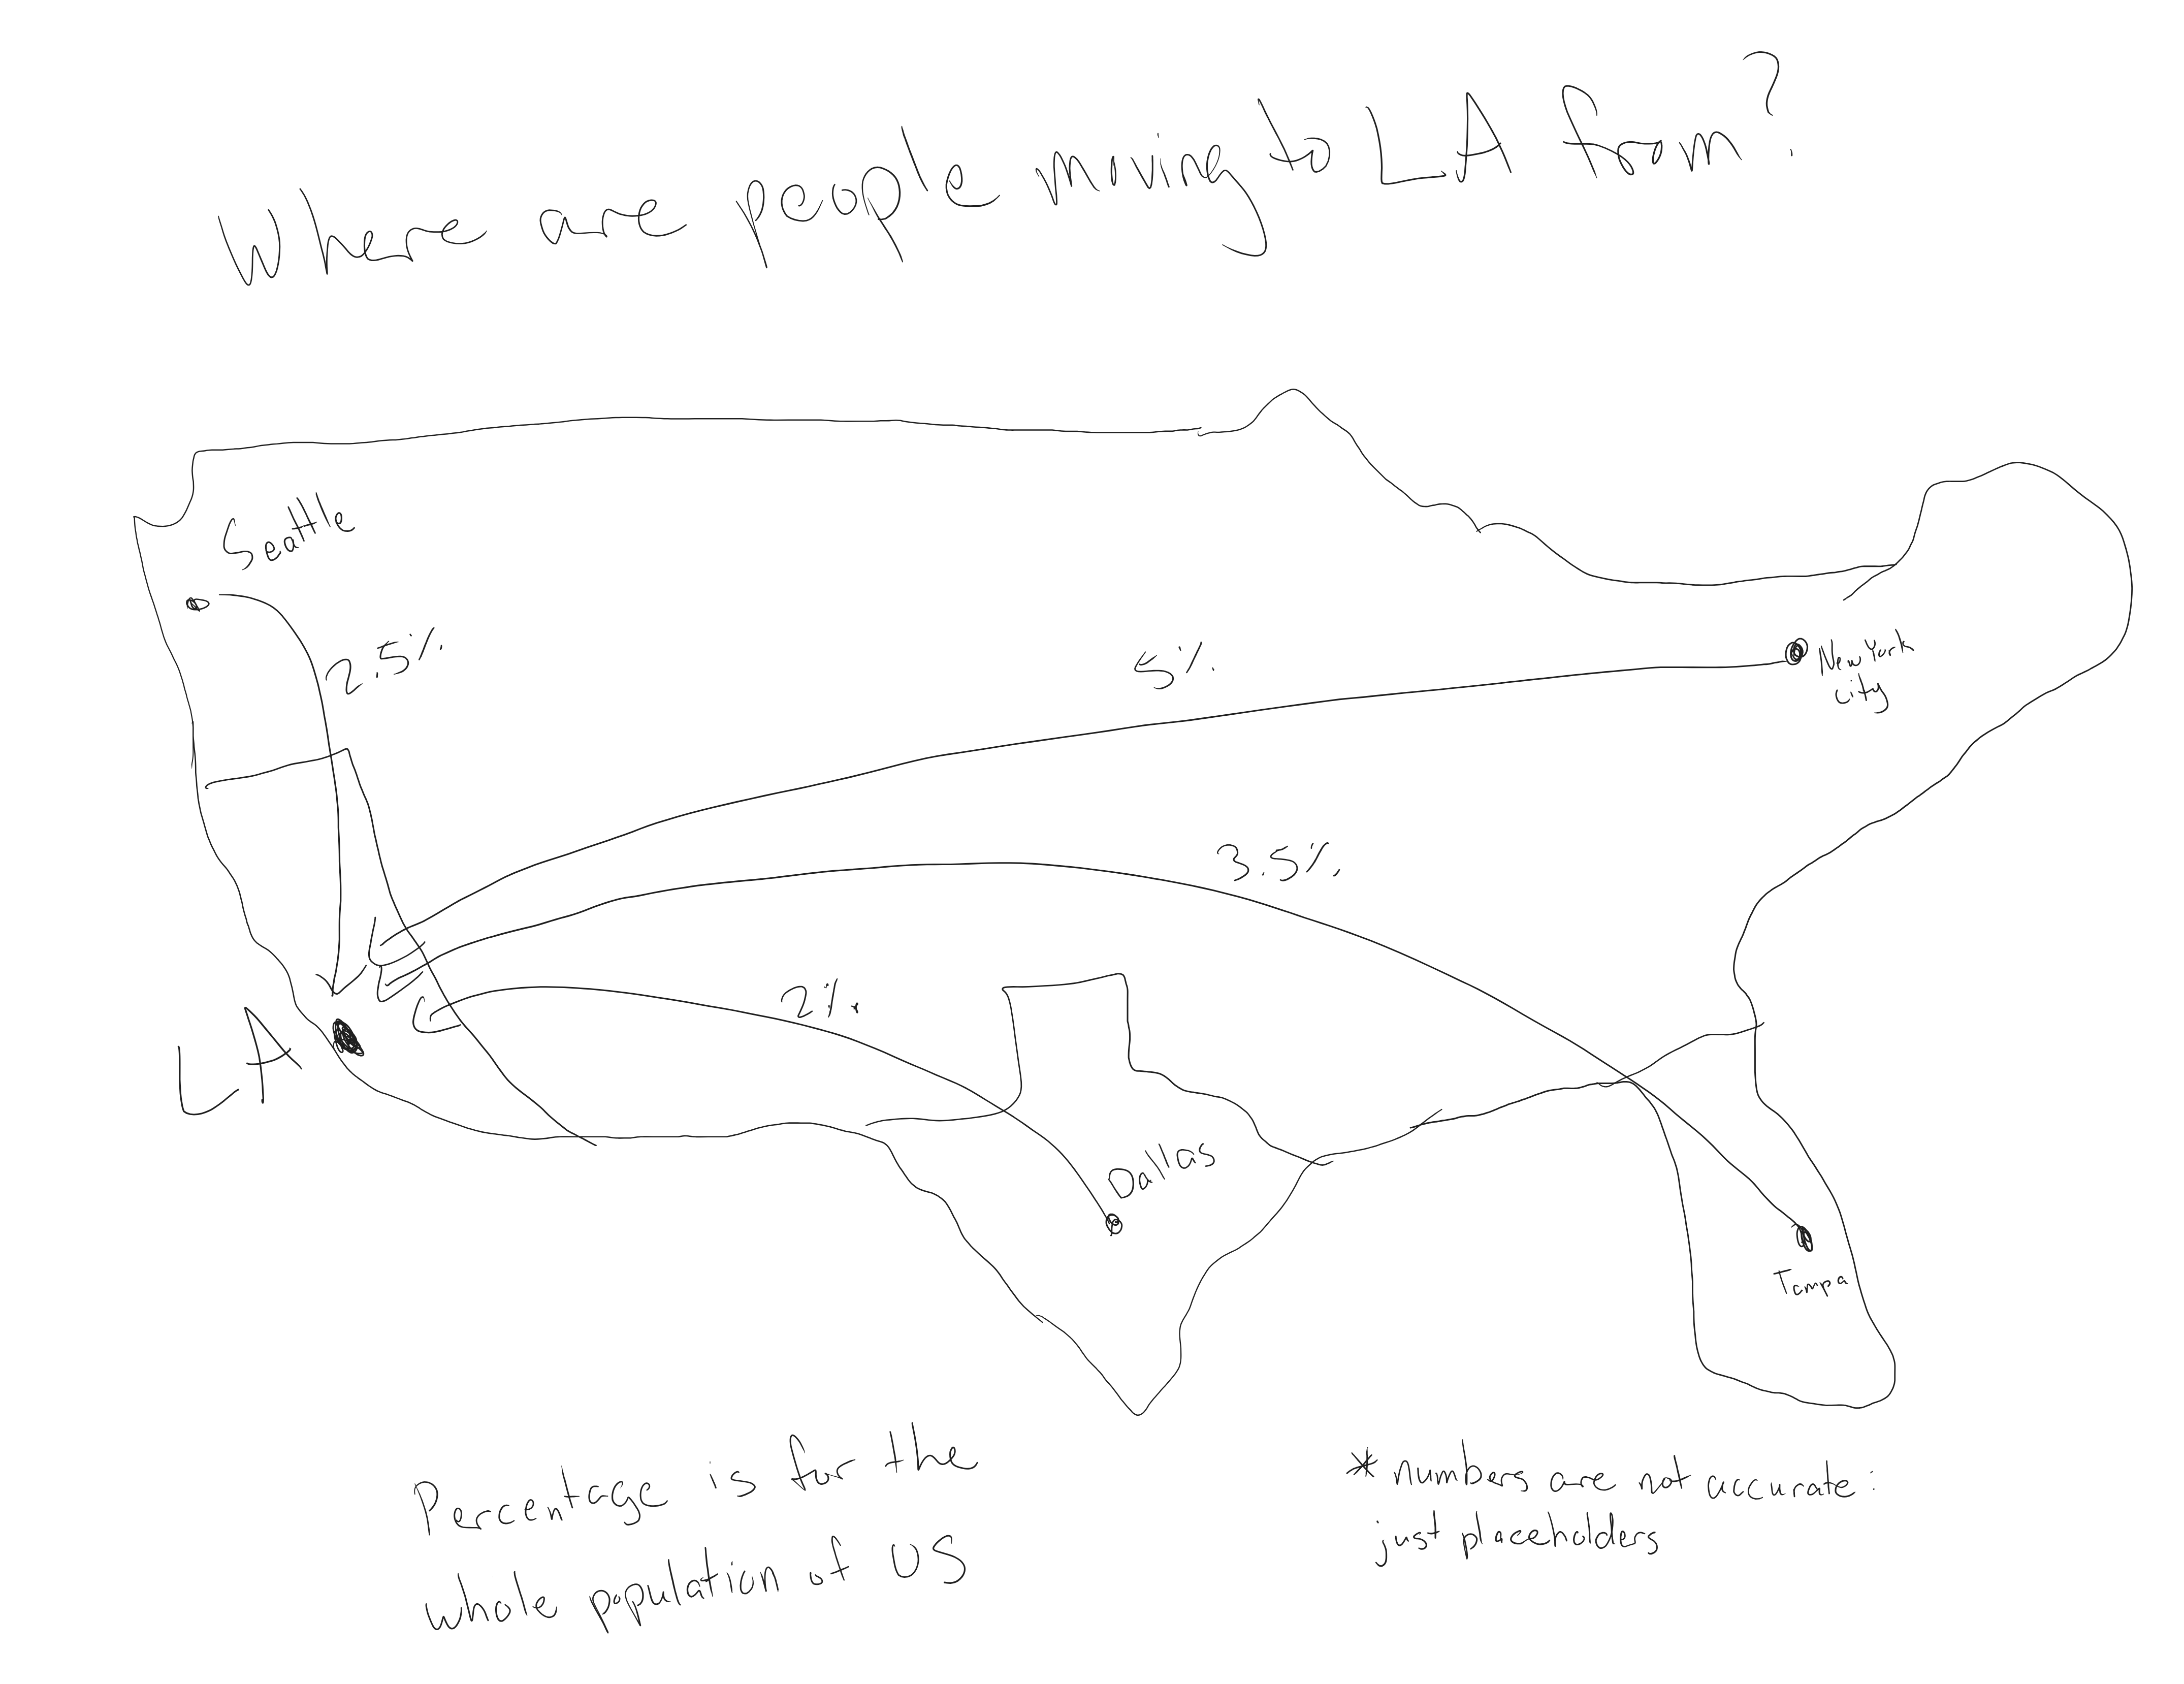 Where are people moving to LA from?
Seattle
2.5%
5%
New York
city
3.5%
2%
LA
Dallas
Tampa
Percentage is for the
whole ppulation of US
* numbers are not accurate:
just placeholders